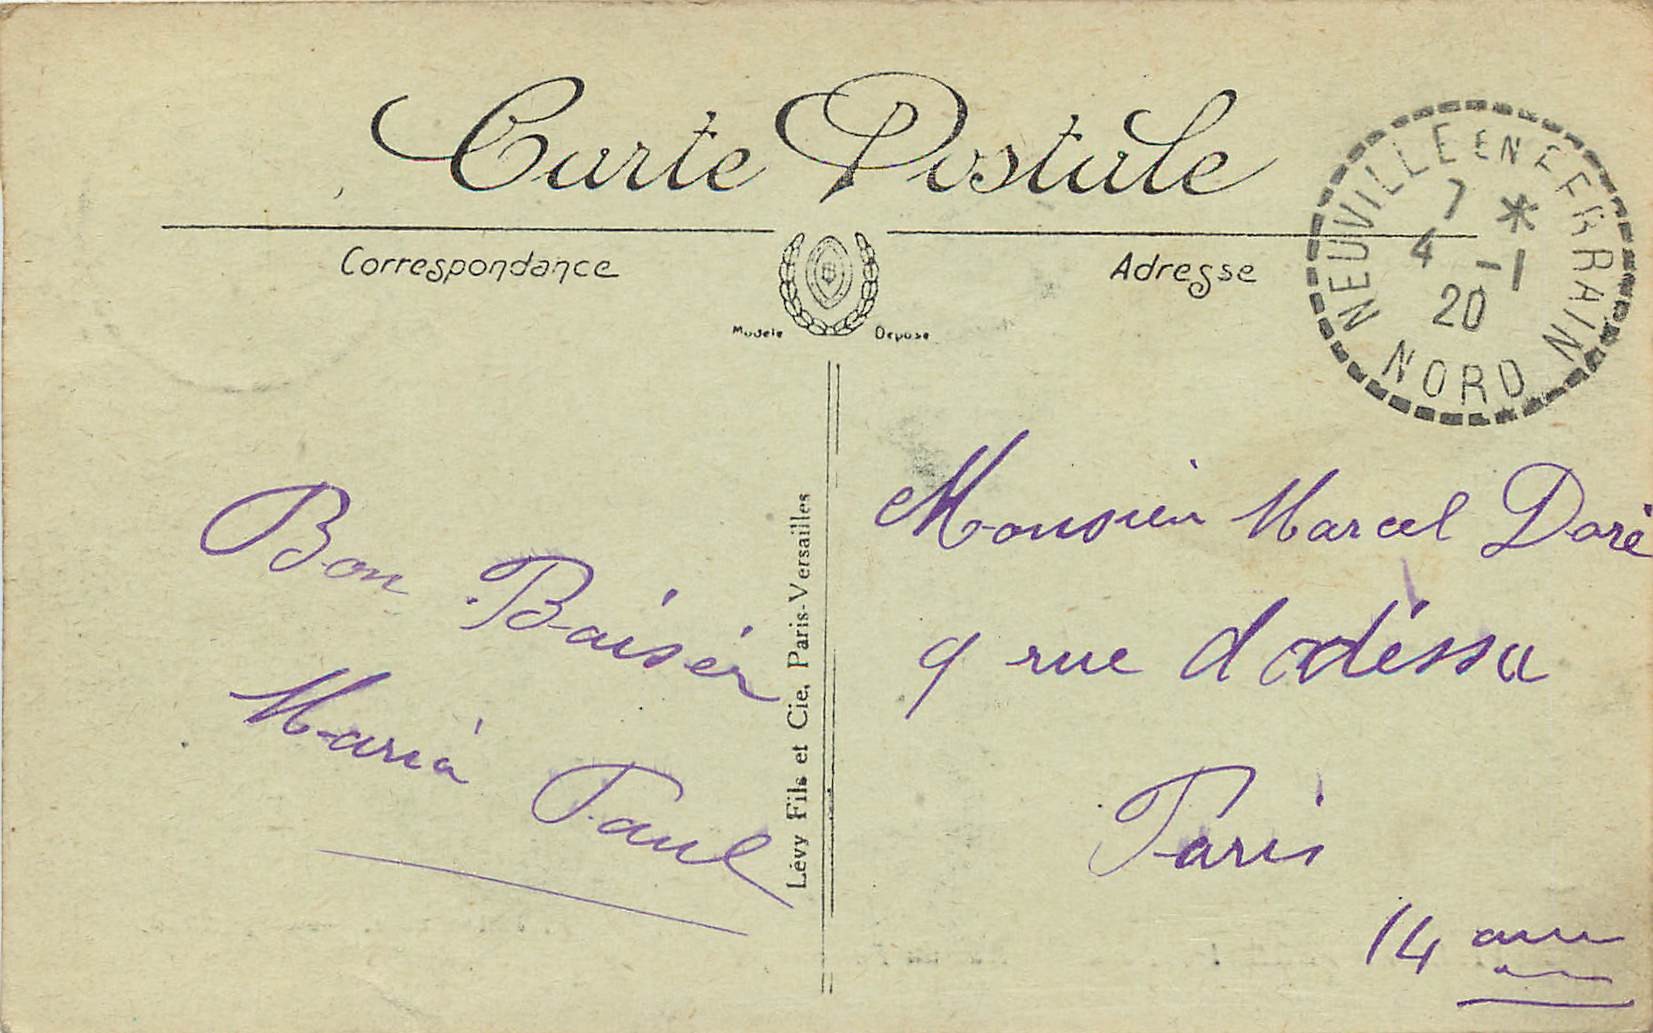 Carte Postale
Correspondance
Adresse
Modèle Déposé
NEUVILLE EN FERRAIN
7 *
4 -1
20
NORD
Bon Baiser
Maria Paul
Lévy Fils et Cie, Paris-Versailles
Monsieur Marcel Doré
9 rue dodéssa
Paris
14